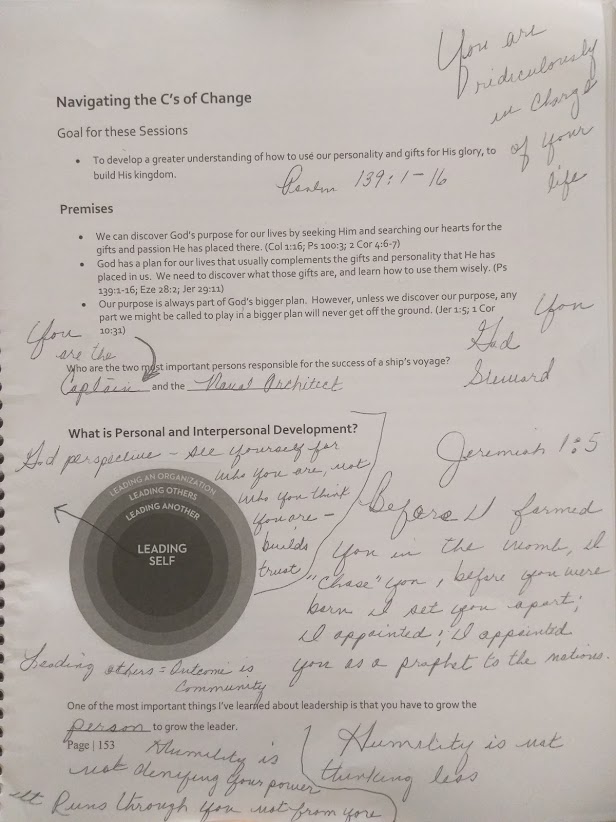 You are
ridiculously
in charge
of your
life
Navigating the C's of Change
Goal for these Sessions
• To develop a greater understanding of how to use our personality and gifts for His glory, to
build His kingdom.
Psalm 139:1-16
Premises
• We can discover God's purpose for our lives by seeking Him and searching our hearts for the
gifts and passion He has placed there. (Col 1:16; Ps 100:3; 2 Cor 4:6-7)
• God has a plan for our lives that usually complements the gifts and personality that He has
placed in us. We need to discover what those gifts are, and learn how to use them wisely. (Ps
139:1-16; Eze 28:2; Jer 29:11)
• Our purpose is always part of God's bigger plan. However, unless we discover our purpose, any
part we might be called to play in a bigger plan will never get off the ground. (Jer 1:5; 1 Cor
10:31)
You
are the
You
God
Steward
Who are the two most important persons responsible for the success of a ship's voyage?
Captain and the Naval Architect
What is Personal and Interpersonal Development?
God perspective - see yourself for
who you are, not
who you think
you are -
builds
trust
LEADING AN ORGANIZATION
LEADING OTHERS
LEADING ANOTHER
LEADING
SELF
Jeremiah 1:5
Before I formed
you in the womb, I
"Chose" you, before you were
born I set you apart;
I appointed; I appointed
you as a prophet to the nations.
Leading others = Outcome is
Community
One of the most important things I've learned about leadership is that you have to grow the
person to grow the leader.
Page | 153
Humility is
not denying your power
It Runs through you not from you
Humility is not
thinking less